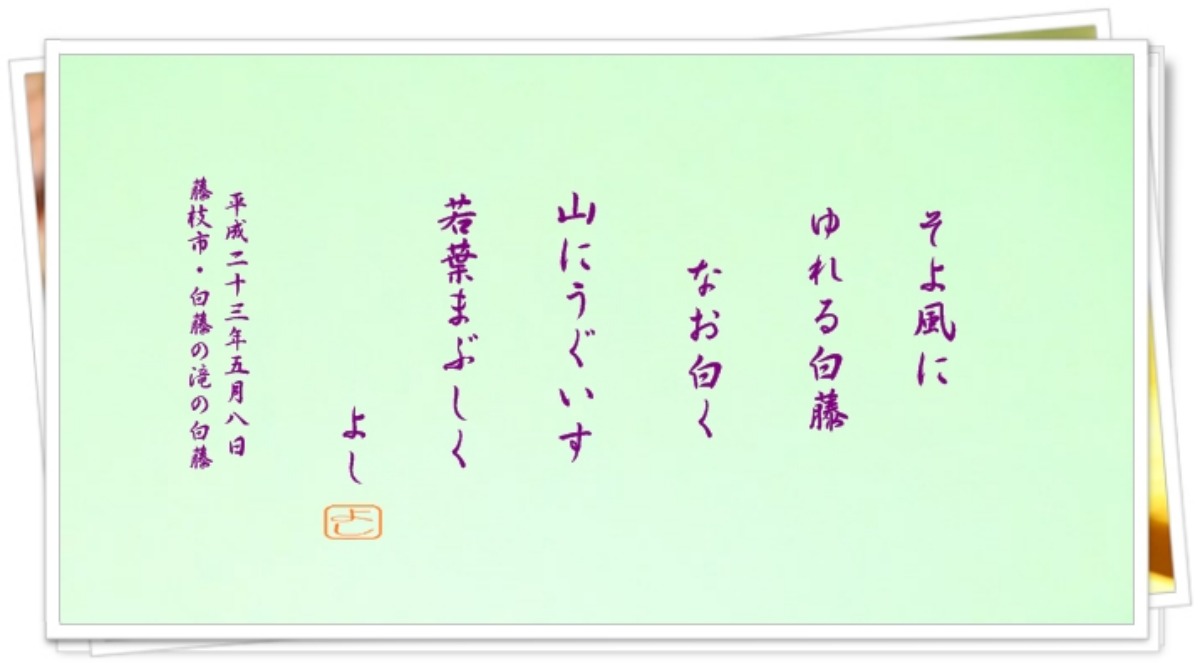 そよ風に
ゆれる白藤
なお白く
山にうぐいす
若葉まぶしく
よし
よし
平成二十三年五月八日
藤枝市・白藤の滝の白藤